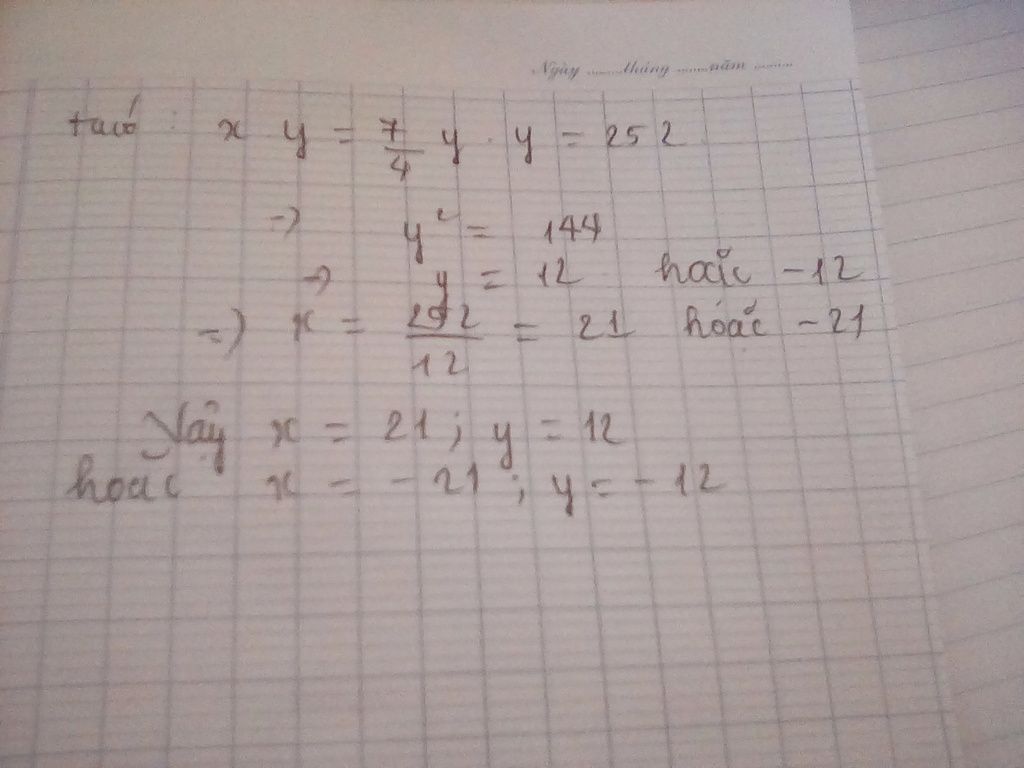 Ngày ........tháng .......năm .........
ta có : x y = 7/4 y . y = 252
=> y² = 144
=> y = 12 hoặc -12
=> x = 252/12 = 21 hoặc -21
Vậy x = 21 ; y = 12
hoặc x = -21 ; y = -12